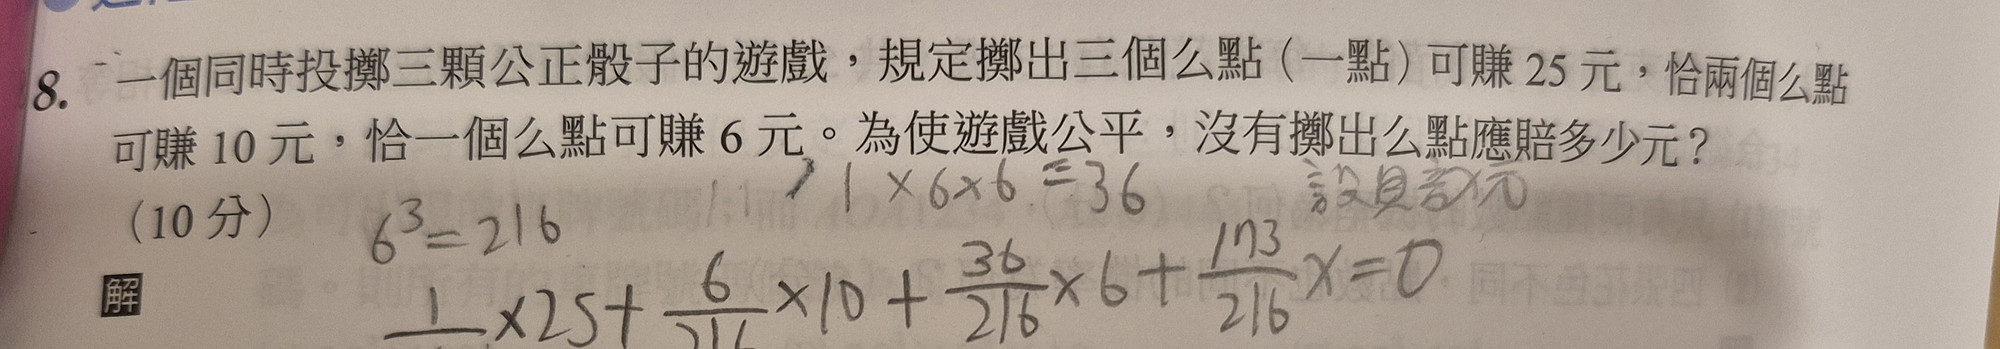 8. 一個同時投擲三顆公正骰子的遊戲，規定擲出三個么點（一點）可賺 25 元，恰兩個么點
可賺 10 元，恰一個么點可賺 6 元。為使遊戲公平，沒有擲出么點應賠多少元？
1×6×6=36 設賠x元
（10 分） 6³=216
解 1 ×25+ 6/216 ×10+ 36/216 ×6+ 173/216 x=0